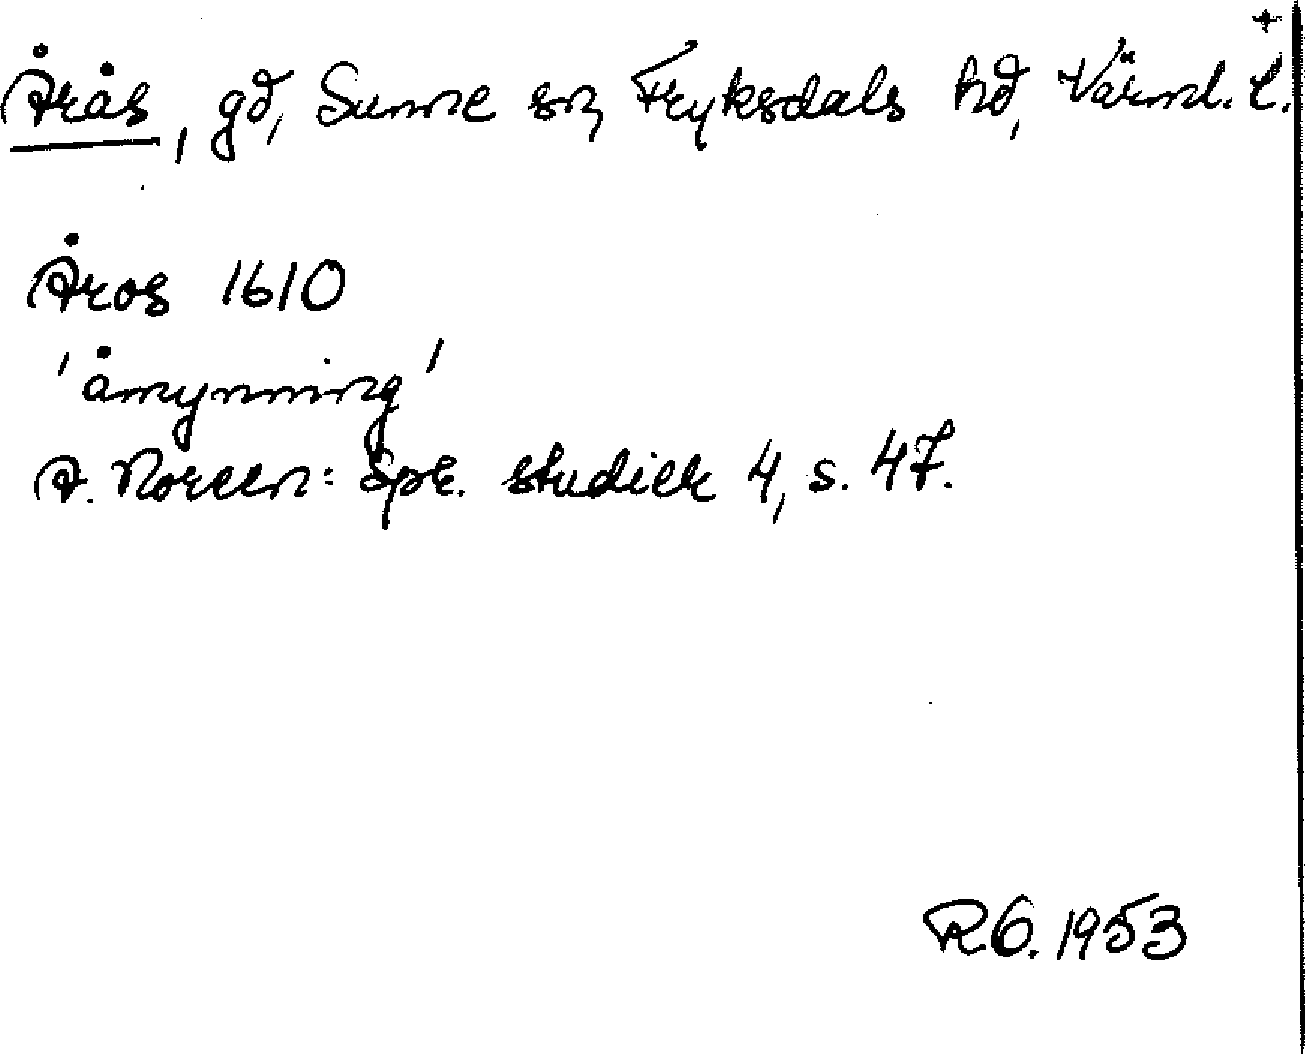 +
Årås, gd, Sunne sn, Fryksdals hd, Värml. l.
Åros 1610
'åmynning'
A. Noreen: Spr. studier 4, s. 47.
RG. 1953